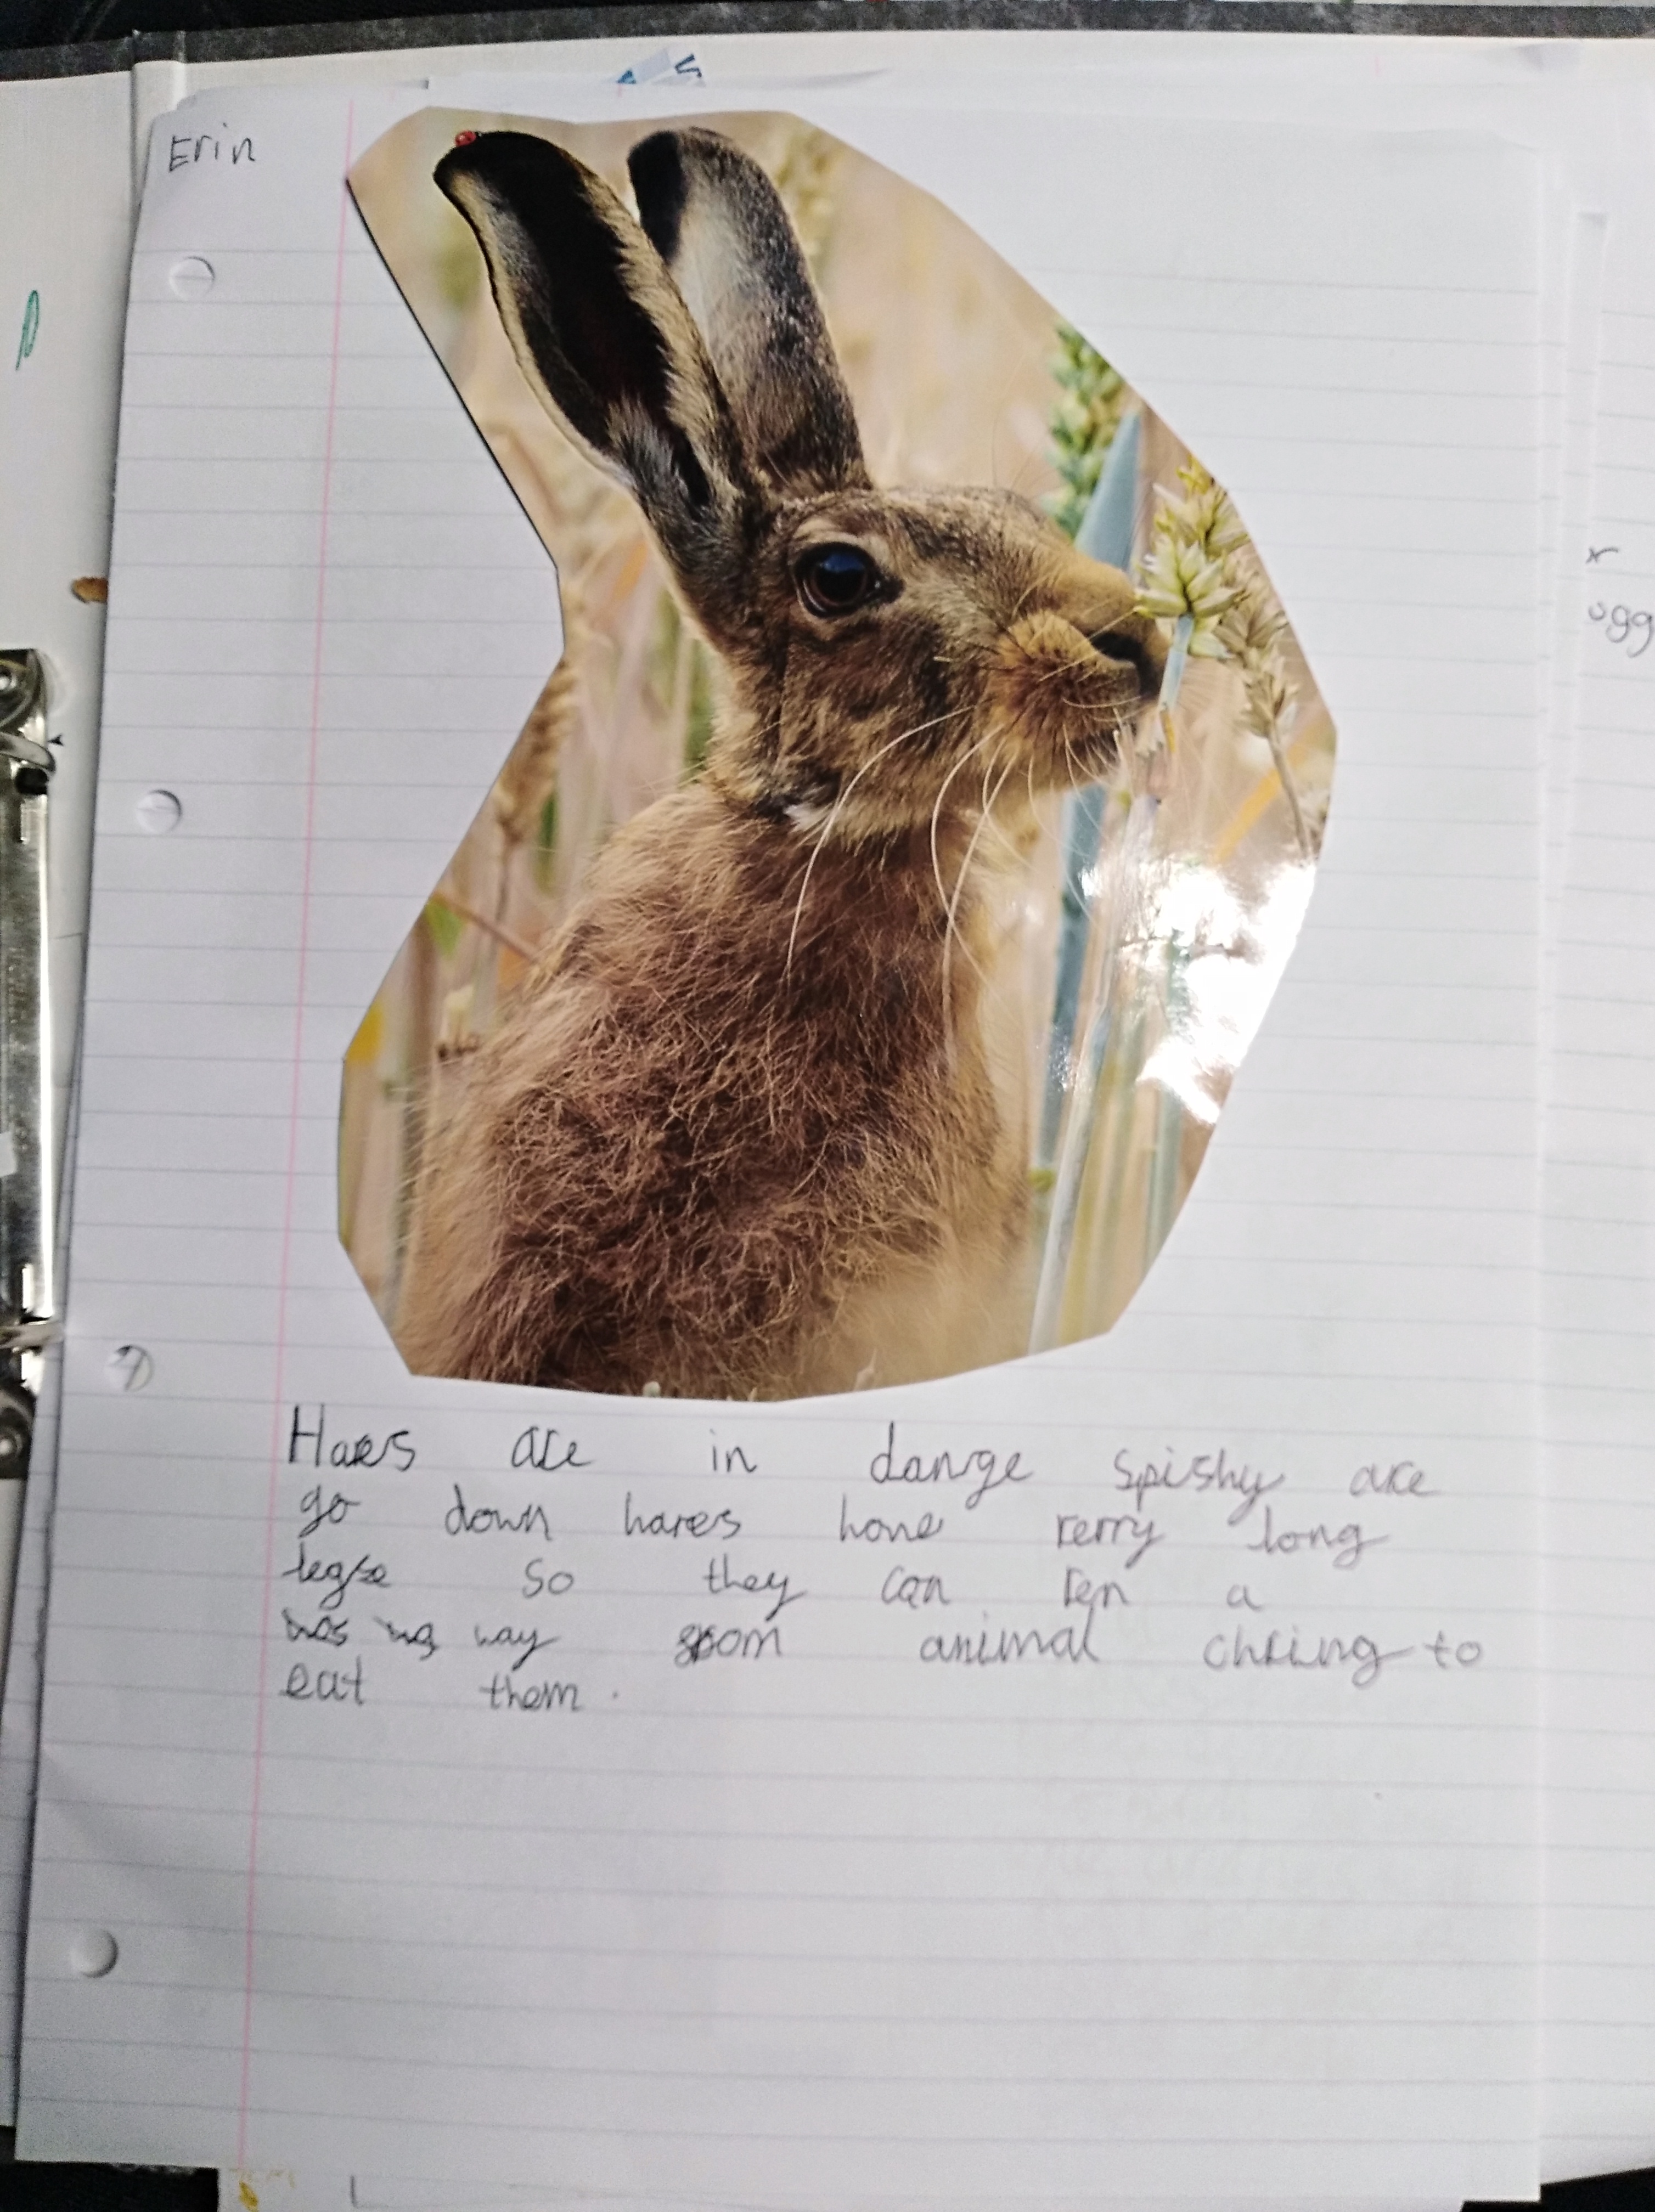 Erin
Hares are in dange spishy are
go down hares have rerry long
legse so they can ren a
way from animal chring to
eat them.